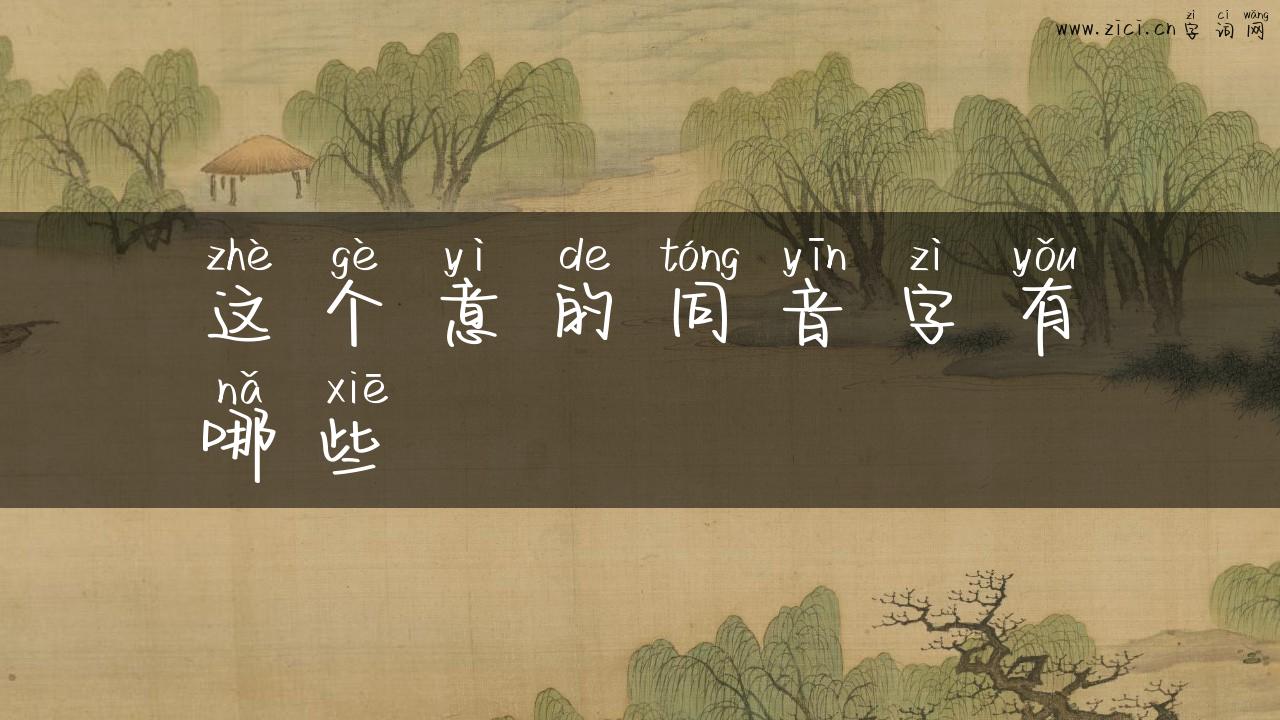 zì cí wǎng
www.zici.cn 字词网
zhè gè yì de tóng yīn zì yǒu
这个意的同音字有
nǎ xiē
哪些